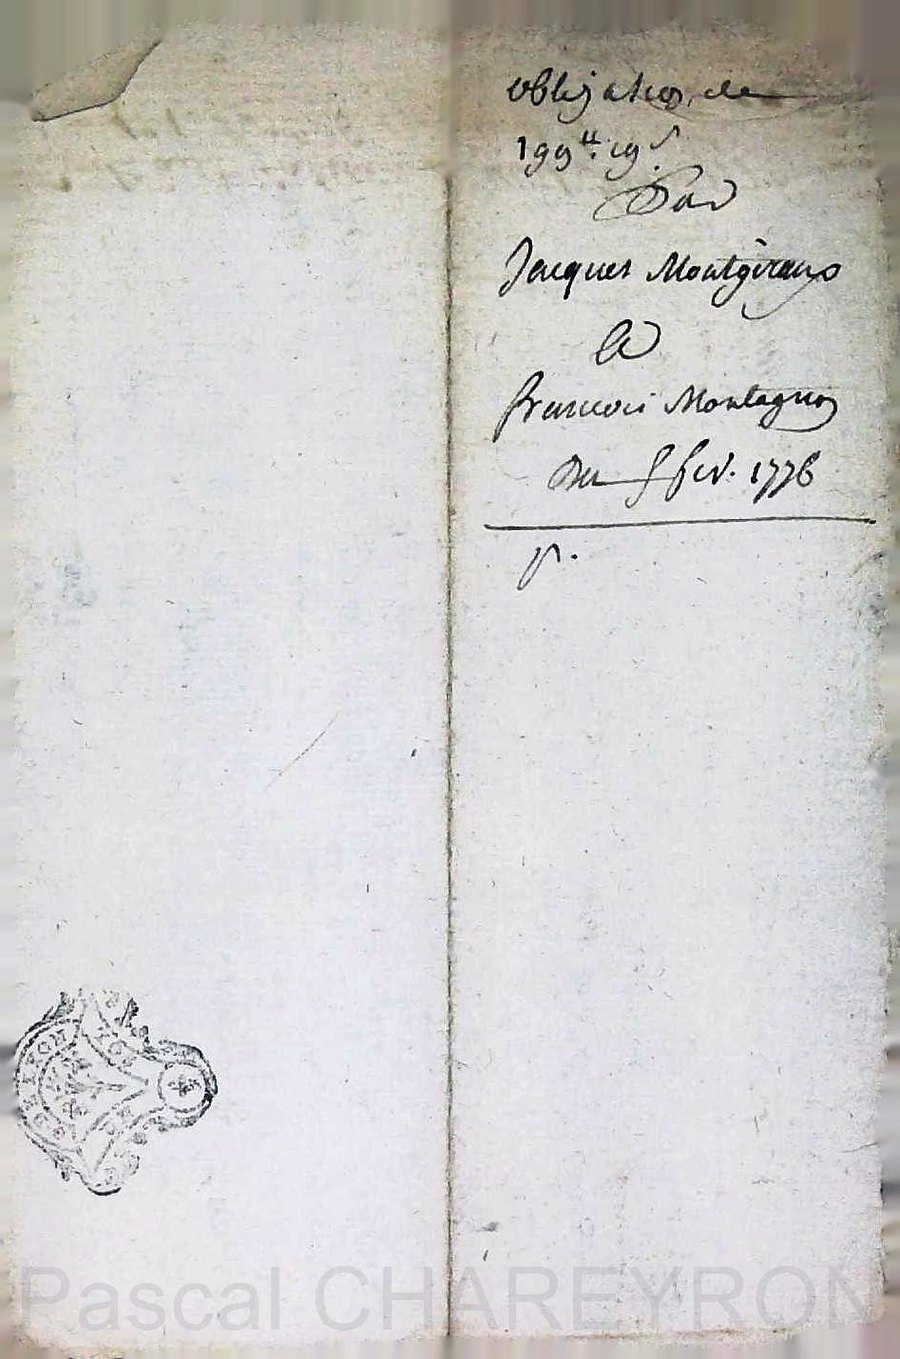 obligation de
199ᵗᵗ. 19ˢ.
Par
Jacques Montgiraux
A
francois Montagnon
Du 5 fev. 1776
p.
Pascal CHAREYRON